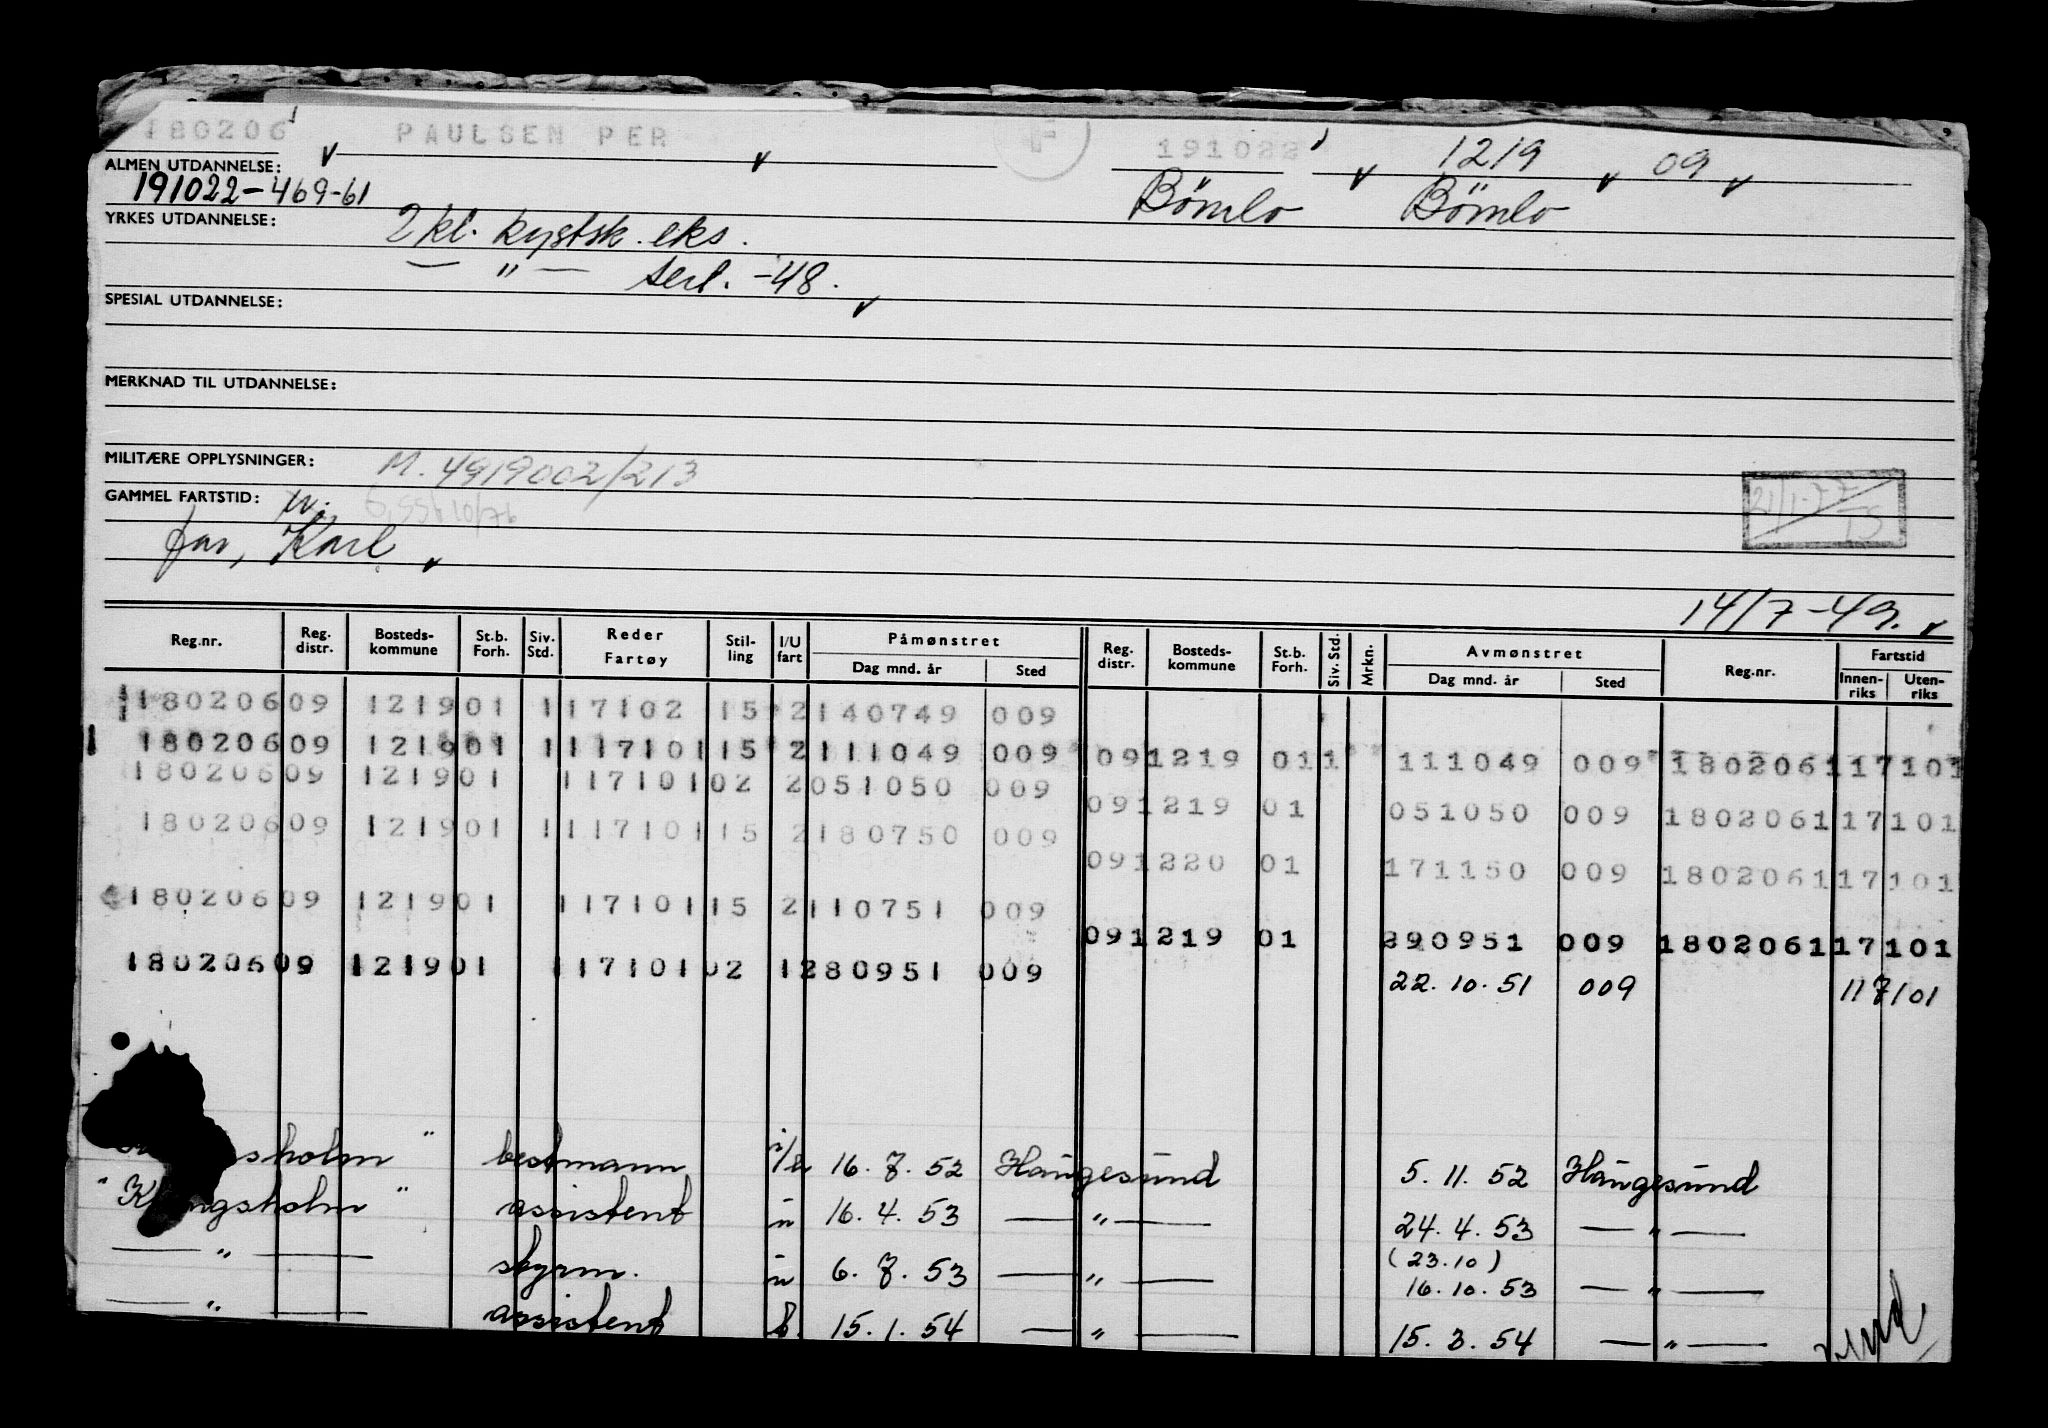 180206 PAULSEN PER F 191022 1219 09
ALMEN UTDANNELSE: Bömlo Bömlo
191022-469-61
YRKES UTDANNELSE: 2 kl. kystsk. eks.
— " — sert. -48.
SPESIAL UTDANNELSE:
MERKNAD TIL UTDANNELSE:
MILITÆRE OPPLYSNINGER: M. 4919002/213
GAMMEL FARTSTID:
21/1-77 TS
far, Karl
14/7-49.
Reg.nr. Reg. distr. Bosteds-kommune St.b. Forh. Siv. Std. Reder Fartøy Stil-ling I/U fart Påmønstret Dag mnd. år Sted Reg. distr. Bosteds-kommune St.b. Forh. Siv. Std. Mrkn. Avmønstret Dag mnd. år Sted Reg.nr. Fartstid Innen-riks Uten-riks
180206 09 1219 01 1 17102 15 2 140749 009
180206 09 1219 01 1 117101 15 2 111049 009 09 1219 01 1 111049 009 180206 1 117101
180206 09 1219 01 117101 02 2 051050 009
09 1219 01 051050 009 180206 117101
180206 09 1219 01 1 117101 15 2 180750 009
09 1220 01 171150 009 180206 117101
180206 09 1219 01 117101 15 2 110751 009
09 1219 01 290951 009 180206 117101
180206 09 1219 01 117101 02 1 280951 009
22.10.51 009 117101
sholm " bestmann 16.7.52 Haugesund 5.11.52 Haugesund
" Klingsholm " assistent u 16.4.53 — " — 24.4.53 — " —
(23.10)
— " — styrm. u 6.7.53 — " — 16.10.53 — " —
— " — assistent 15.1.54 — " — 15.3.54 — " —